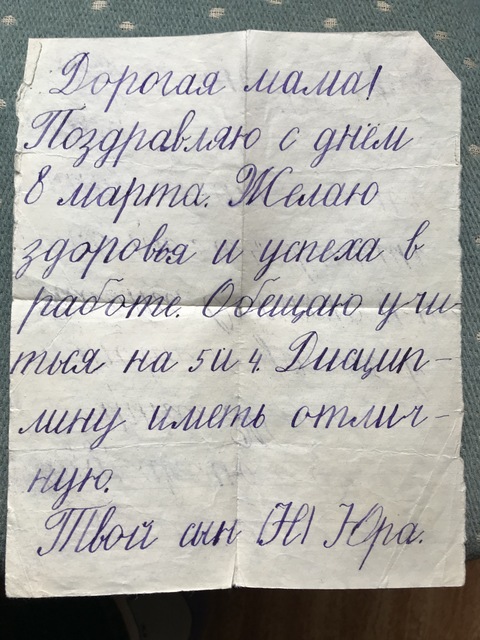 Дорогая мама!
Поздравляю с днём
8 марта. Желаю
здоровья и успеха в
работе. Обещаю учи-
ться на 5 и 4. Дисцип-
лину иметь отлич-
ную.
Твой сын (Н) Юра.